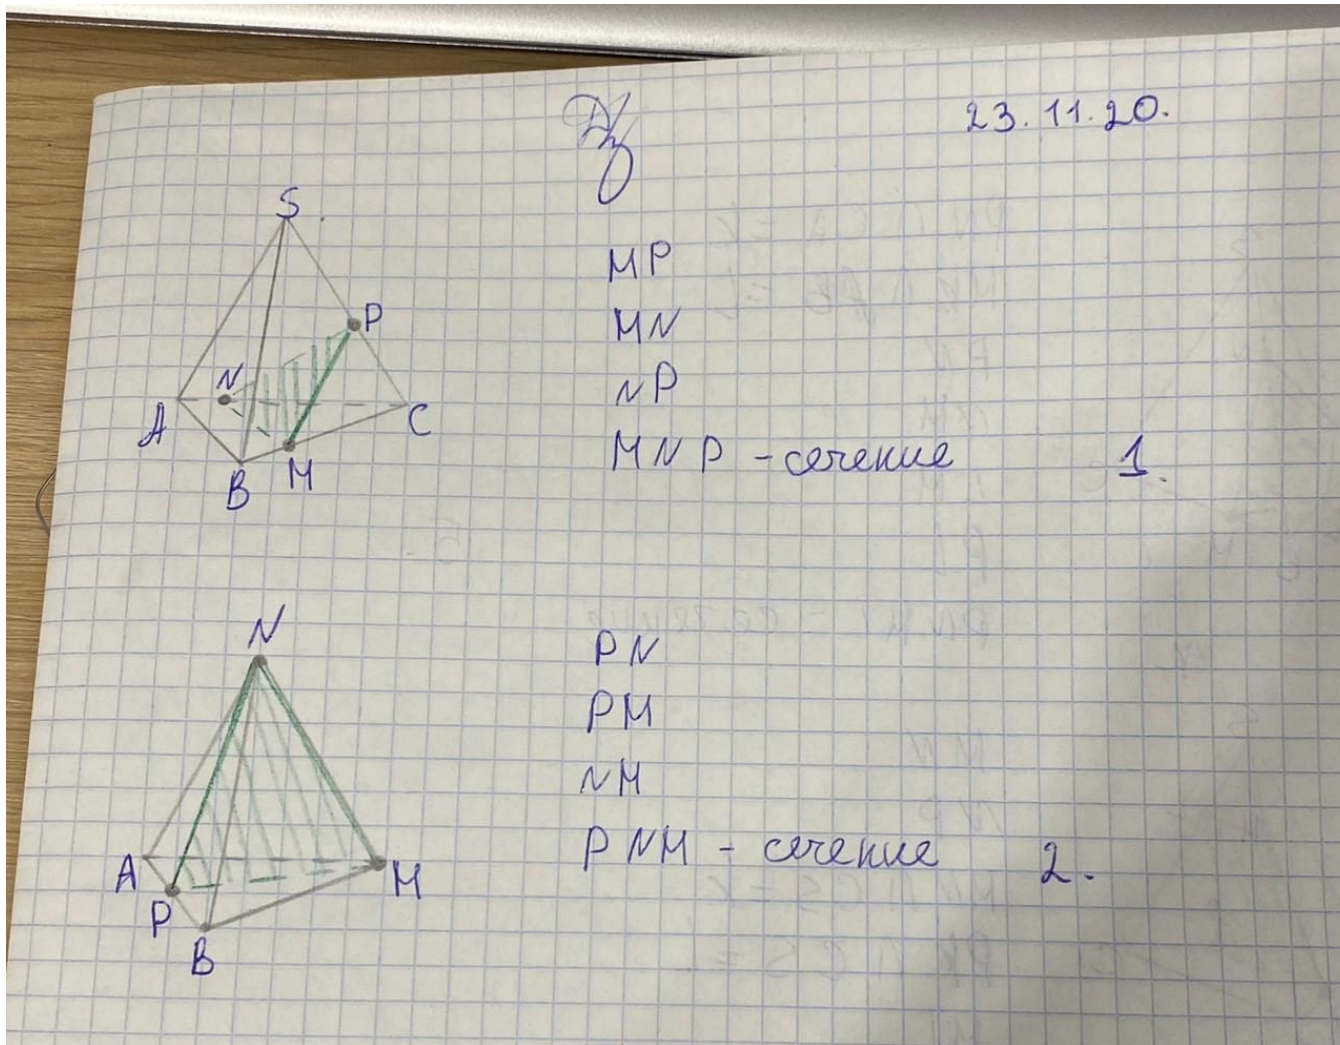 Дз
23.11.20.
S
P
N
A
C
B
M
MP
MN
NP
MNP - сечение
1.
N
A
P
B
M
PN
PM
NM
PNM - сечение
2.